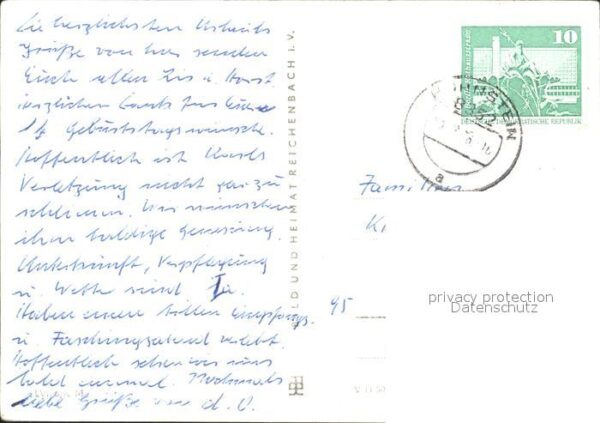 Die herzlichsten Urlaubs
Grüße von hier senden
Euch allen
herzlichen Dank für Eure
Geburtstagswünsche.
Hoffentlich ist
Verletzung nicht gar zu
schlimm. Wir wünschen
ihm baldige Genesung.
Unterkunft, Verpflegung
u. Wetter sind Ia.
Haben einen tollen Empfangs
u. Faschingsabend erlebt.
Hoffentlich sehen wir uns
bald einmal. Nochmals
liebe Grüße von
BILD UND HEIMAT REICHENBACH i. V.
10
DEUTSCHE DEMOKRATISCHE REPUBLIK
a
Familien
K
95
privacy protection
Datenschutz